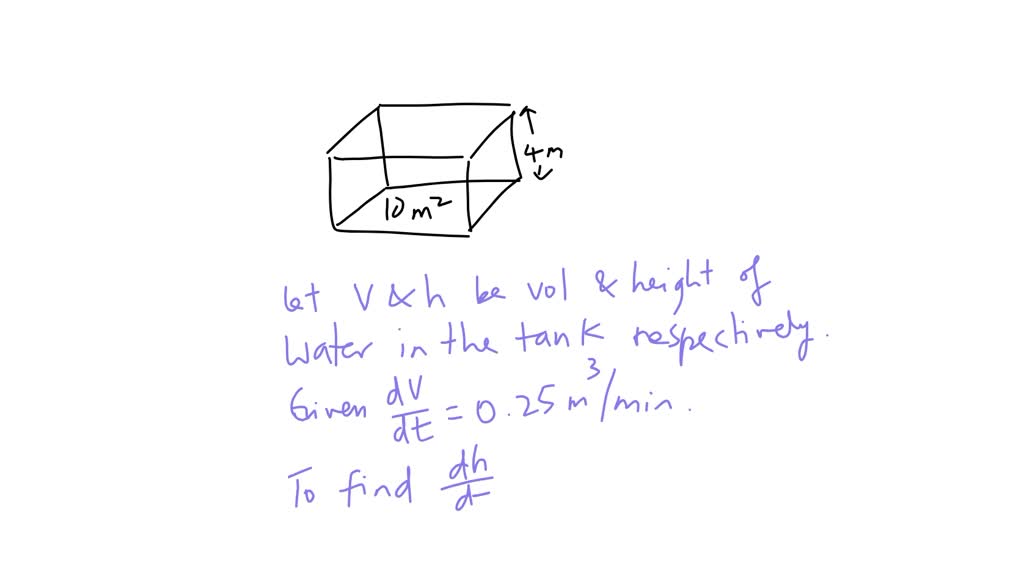 4m
10 m²
Let V & h be vol & height of
water in the tank respectively.
Given dV/dt = 0.25 m³/min.
To find dh/d